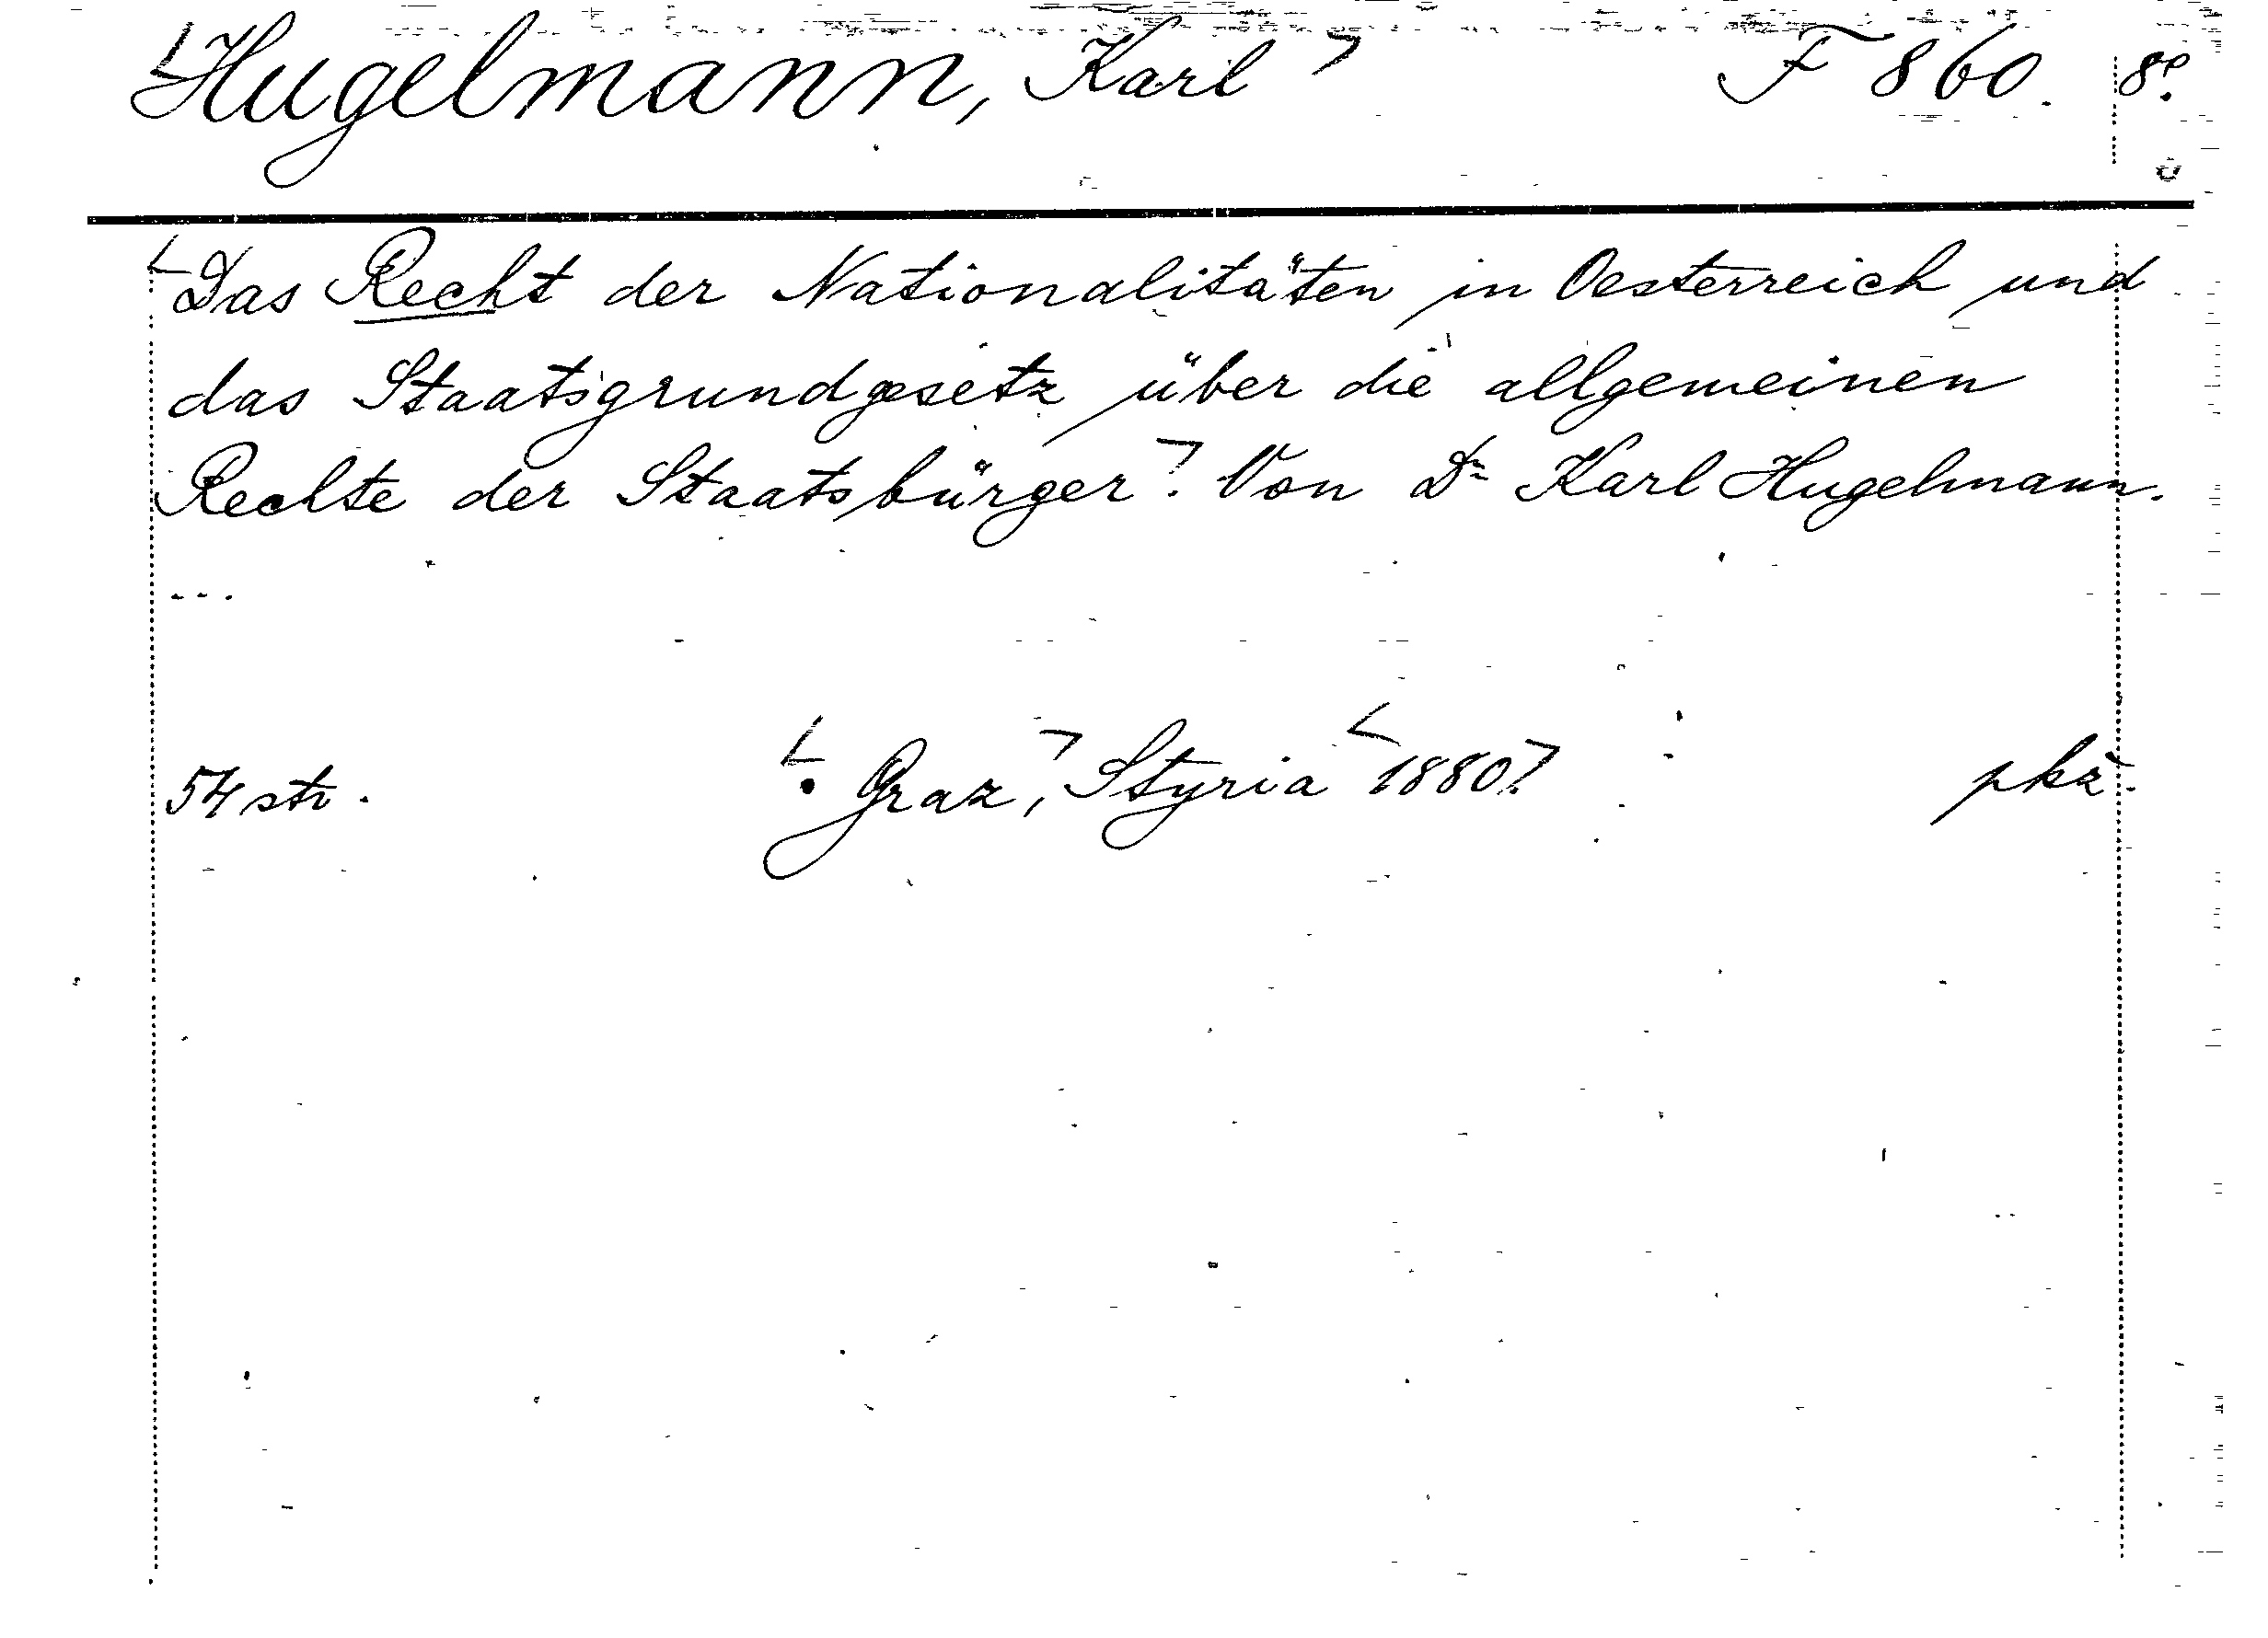 Hugelmann, Karl F 860. 8°.
Das Recht der Nationalitäten in Oesterreich und
das Staatsgrundgesetz über die allgemeinen
Rechte der Staatsbürger. Von Dr Karl Hugelmann.
...
54 str. Graz, Styria 1880. pkž.